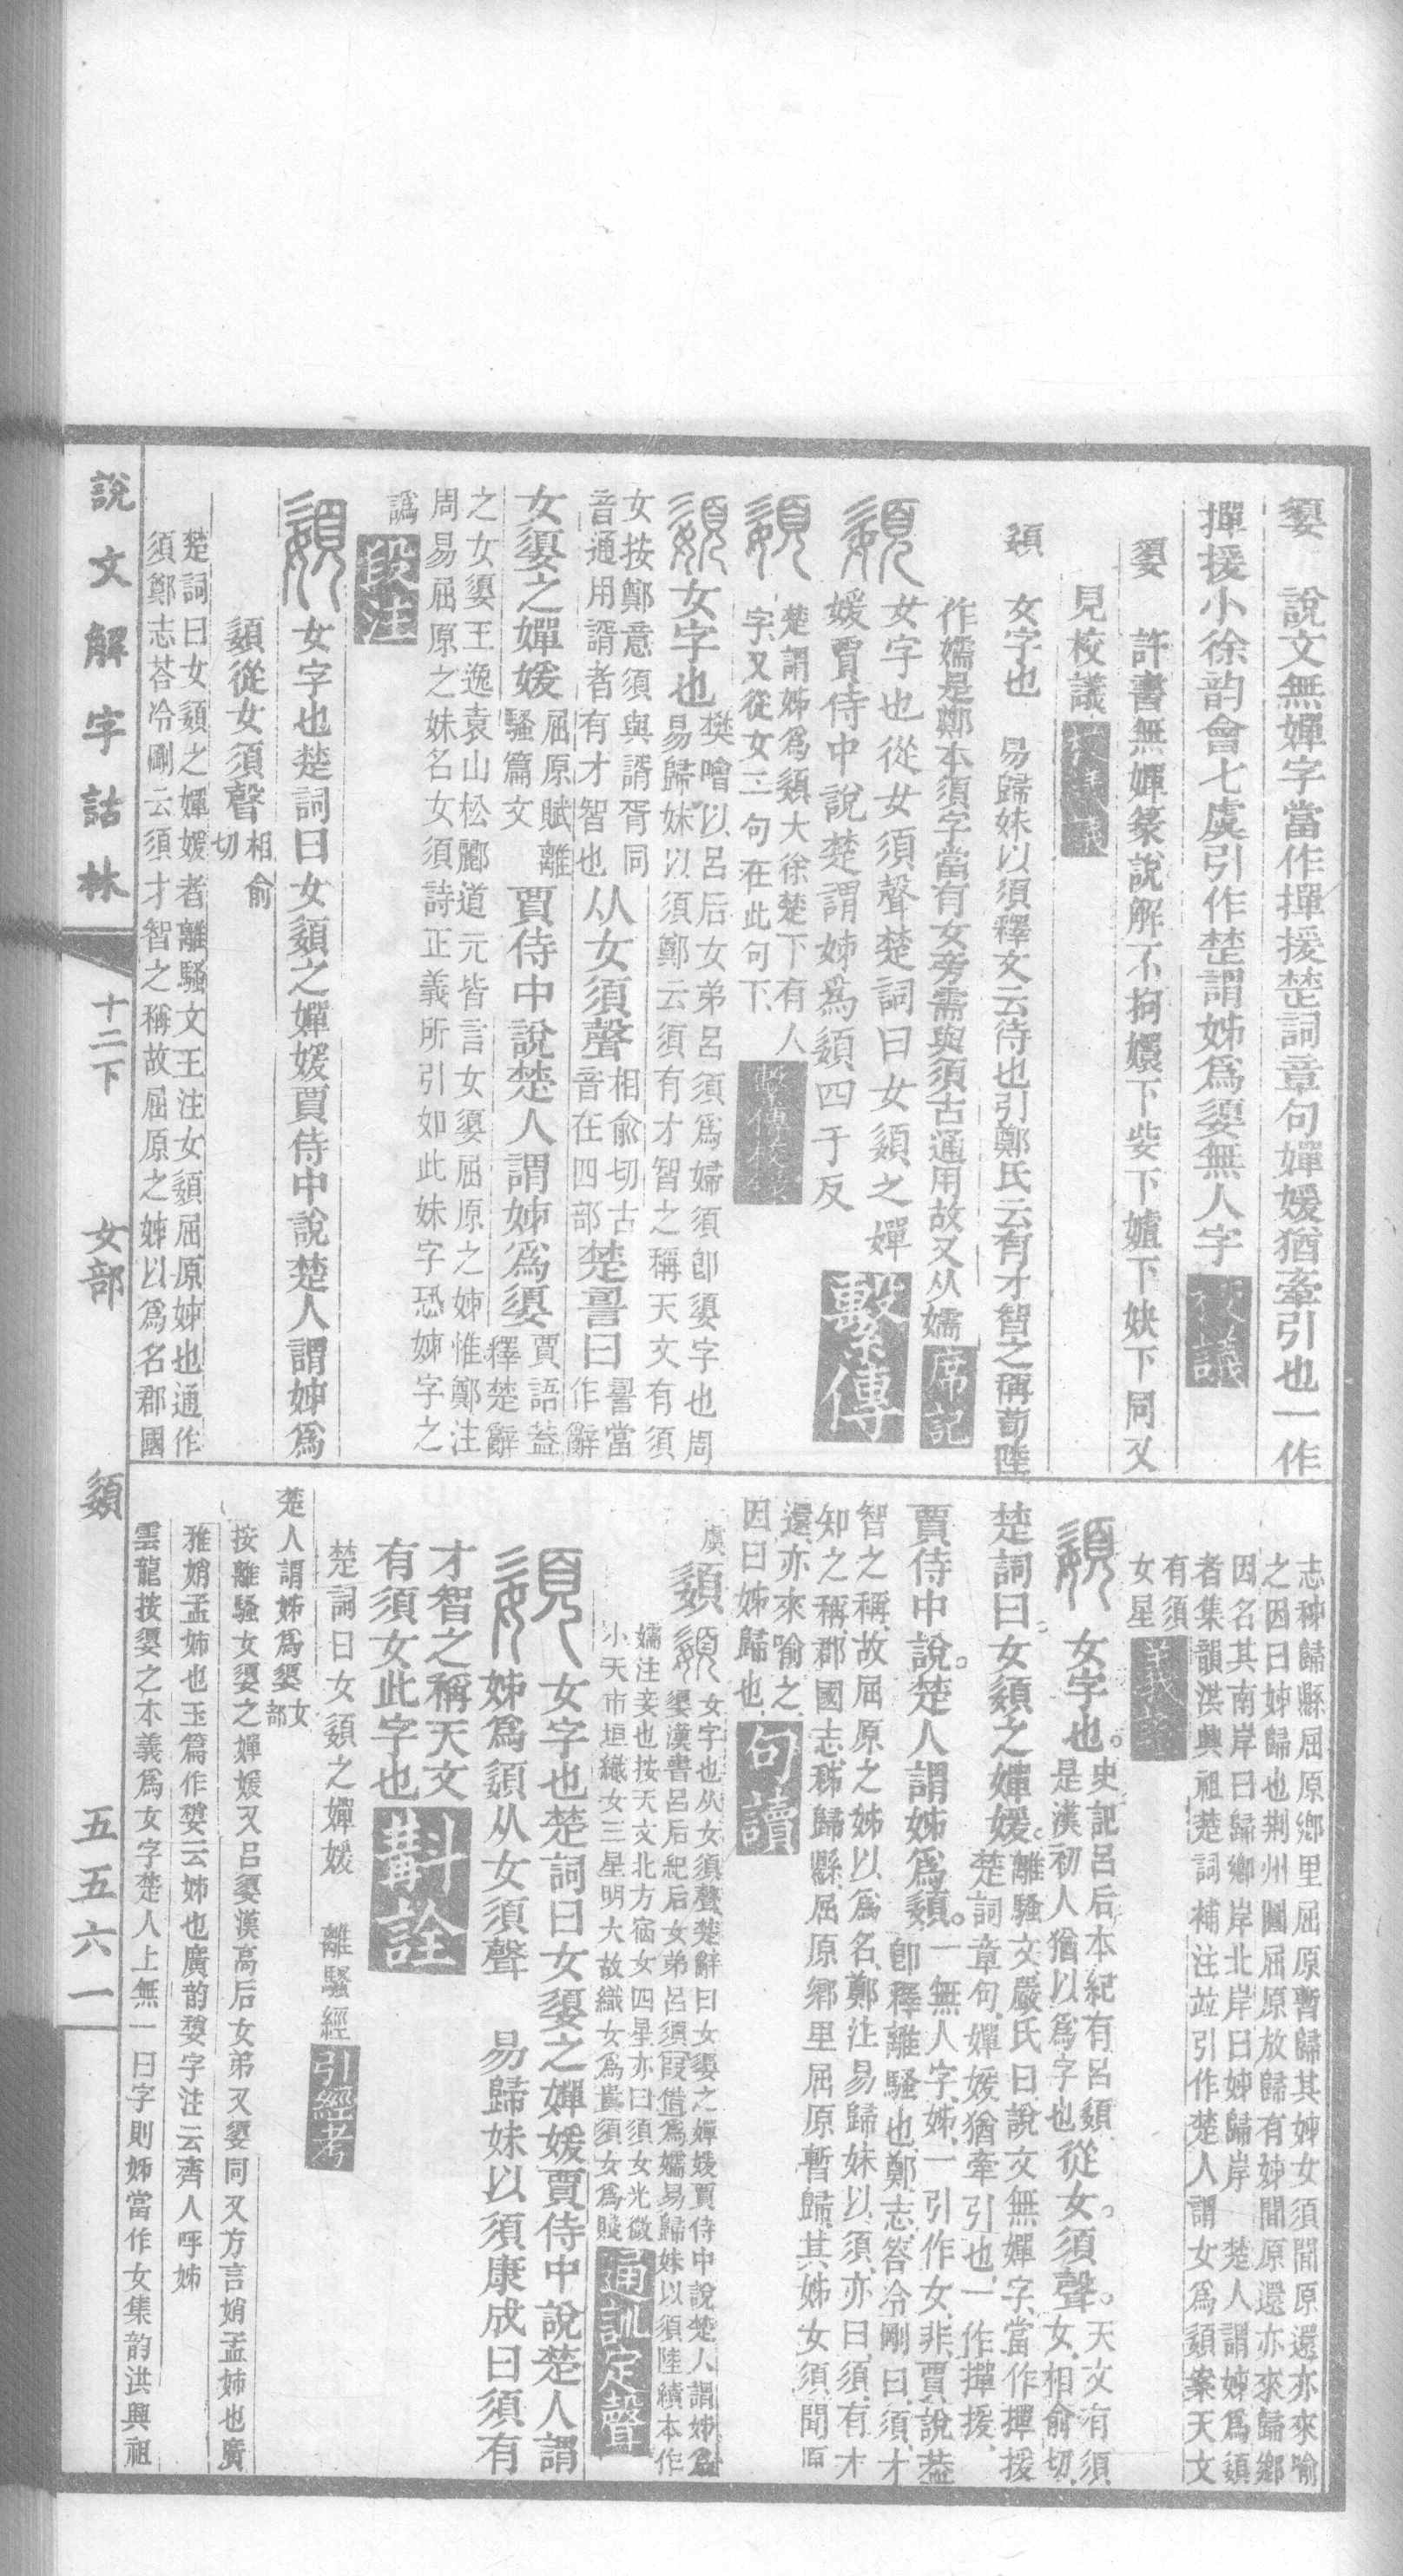 嬃　說文無嬋字當作撣援楚詞章句嬋媛猶牽引也一作
撣援小徐韵會七虞引作楚謂姊爲嬃無人字校議
嬃　許書無嬋篆說解不拘嬛下㛗下嫧下妜下同又
見校議校議議
嬃　女字也　易歸妹以須釋文云待也引鄭氏云有才智之稱荀陸
作嬬是鄭本須字當有女旁需與須古通用故又从嬬席記
女字也從女須聲楚詞曰女嬃之嬋
媛賈侍中說楚謂姊爲嬃四于反繫傳
楚謂姊爲嬃大徐楚下有人
字又從女二句在此句下
女字也樊噲以呂后女弟呂須爲婦須卽嬃字也周
易歸妹以須鄭云須有才智之稱天文有須
女按鄭意須與諝胥同
音通用諝者有才智也从女須聲相俞切古音在四部楚䛐曰䛐當作辭
女嬃之嬋媛屈原賦離騷篇文賈侍中說楚人謂姊爲嬃賈語葢釋楚辭
之女嬃王逸袁山松酈道元皆言女嬃屈原之姊惟鄭注
周易屈原之妹名女須詩正義所引如此妹字恐姊字之
譌段注
女字也楚詞曰女嬃之嬋媛賈侍中說楚人謂姊爲
嬃從女須聲相俞切
楚詞曰女嬃之嬋媛者離騷文王注女嬃屈原姊也通作
須鄭志荅冷剛云須才智之稱故屈原之姊以爲名郡國
志秭歸縣屈原鄉里屈原暫歸其姊女須聞原還亦來喻
之因曰姊歸也荆州圖屈原放歸有姊聞原還亦來歸鄉
因名其南岸曰歸鄉岸北岸曰姊歸岸　楚人謂姊爲嬃
者集韻洪興祖楚詞補注竝引作楚人謂女爲嬃案天文
有須
女星義證
女字也。史記呂后本紀有呂嬃、是漢初人猶以爲字也從女。須聲。天文有須女、相俞切、
楚詞曰。女嬃之嬋媛。離騷文嚴氏曰、說文無嬋字、當作撣援楚詞章句、嬋媛猶牽引也、一作撣援、
賈侍中說。楚人謂姊爲嬃。一無人字、姊、一引作女、非、賈說葢卽釋離騷也、鄭志答冷剛曰、須、才
智之稱、故屈原之姊以爲名、鄭注易歸妹以須、亦曰、須、有才
知之稱、郡國志、秭歸縣、屈原鄉里、屈原暫歸、其姊女須、聞原
還、亦來喻之、
因曰姊歸也、句讀
虞嬃女字也从女須聲楚辭曰女嬃之嬋媛賈侍中說楚人謂姊爲
嬃漢書呂后紀后女弟呂須叚借爲嬬易歸妹以須陸績本作
嬬注妾也按天文北方宿女四星亦曰須女光微
小天市垣織女三星明大故織女爲貴須女爲賤通訓定聲
女字也楚詞曰女嬃之嬋媛賈侍中說楚人謂
姊爲嬃从女須聲　易歸妹以須康成曰須有
才智之稱天文
有須女此字也斠詮
楚詞曰女嬃之嬋媛　離騷經引經考
楚人謂姊爲嬃女部
按離騷女嬃之嬋媛又呂嬃漢高后女弟又嬃同又方言媦孟姊也廣
雅媦孟姊也玉篇作㜅云姊也廣韵㜅字注云齊人呼姊
雲龍按嬃之本義爲女字楚人上無一曰字則姊當作女集韵洪興祖
說文解字詁林　十二下　女部　嬃　五五六一